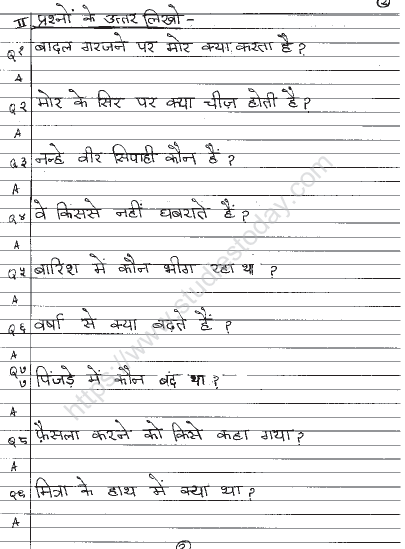 ②
II प्रश्नों के उत्तर लिखो -
Q१ बादल गरजने पर मोर क्या करता है?
A
Q२ मोर के सिर पर क्या चीज़ होती है?
A
Q३ नन्हे वीर सिपाही कौन हैं?
A
Q४ वे किससे नहीं घबराते हैं?
A
Q५ बारिश में कौन भीग रहा था ?
A
Q६ वर्षा से क्या बढ़ते हैं ?
A
Q७ पिंजड़े में कौन बंद था ?
A
Q८ फ़ैसला करने को किसे कहा गया?
A
Q९ मित्रा के हाथ में क्या था ?
A
https://www.studiestoday.com